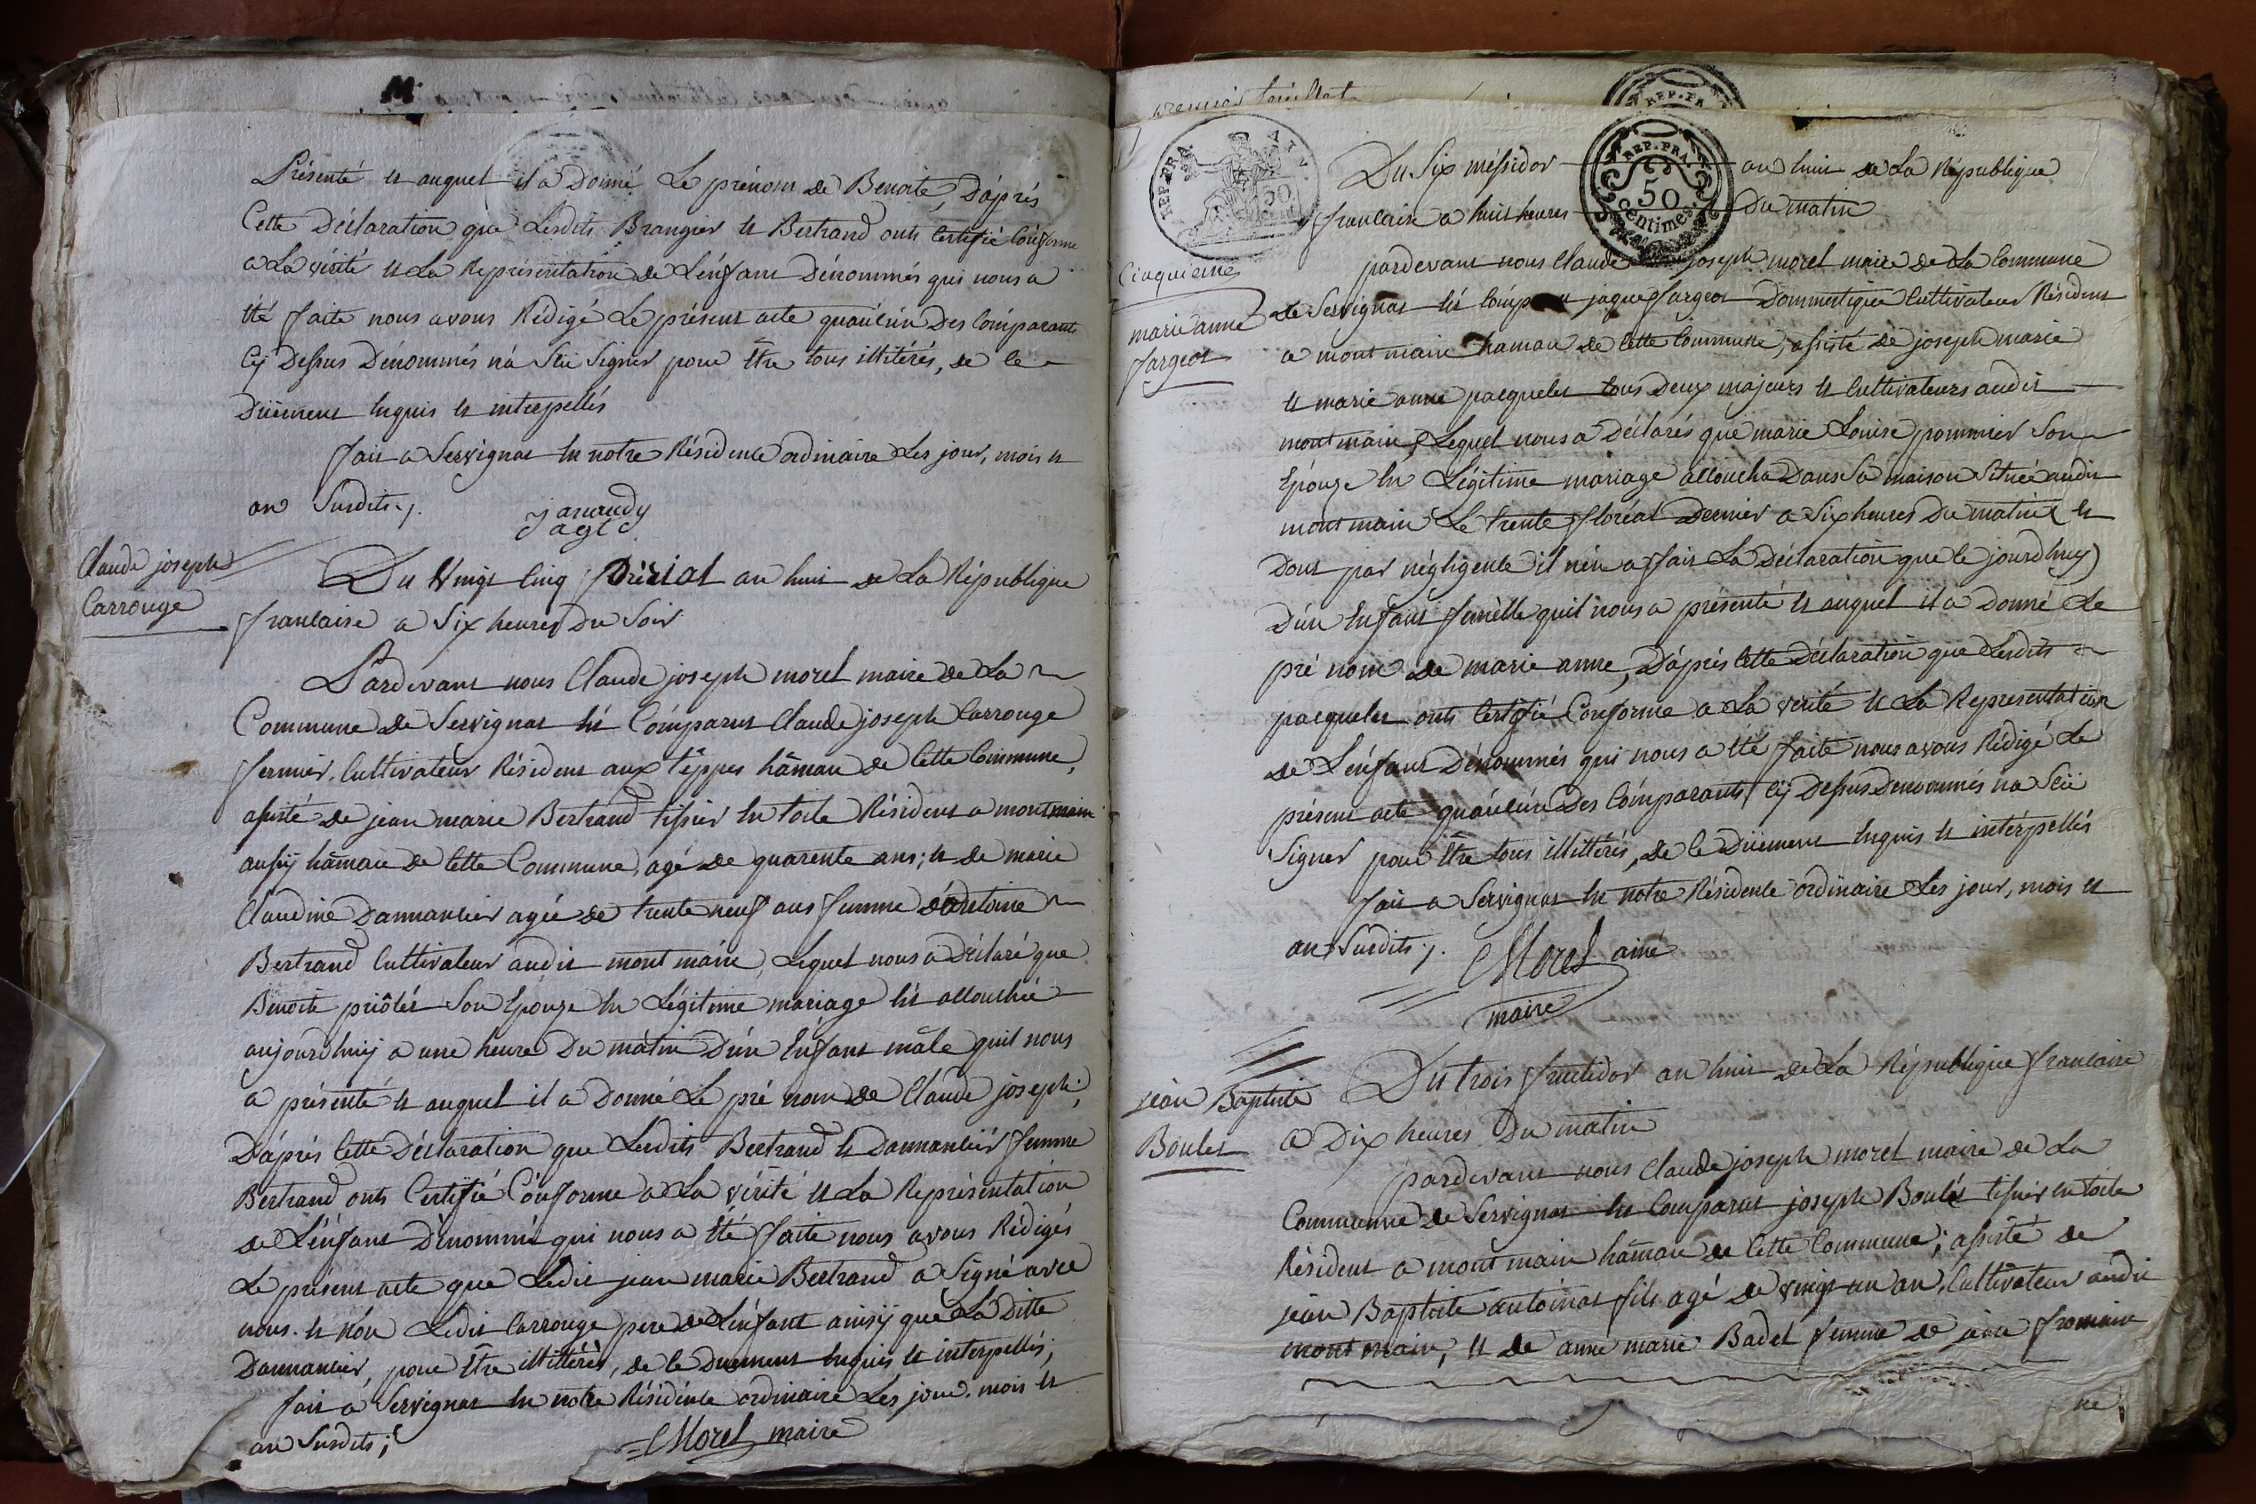 Présenté et auquel il a Donné Le prénom de Benoite, D'áprés
Cette Déclaration que Lesdits Brangier et Bertrand onts Certifié Conforme
a La vérité et La Représentation de L'enfant Dénommés qui nous a
été faite nous avons Rédigé Le présent acte quaúcún Des Comparants
Cy Dessus Dénommés n'a Scu Signer pour être tous illitérés, de ce
Düement Enquis et interpellés
fait a Servignat En notre Résidence ordinaire Les jour, mois et
an Susdits ;.
Claude joseph
Carrouge
Du Vingt Cinq Prérial an huit de La République
francaise a Six heures Du Soir
Pardevant nous Claude joseph morel maire de La
Commune de Servignat Est Comparut Claude joseph Carrouge
fermier, Cultivateur Résident aux téppes hâmau de Cette Commune,
assisté de jean marie Bertrand tissier En toile Résident a montmain
aussÿ hâmau de Cette Commune, agé de quarente ans ; et de marie
Claudine Dannancier agée de trente neuf ans femme d'antoine
Bertrand Cultivateur audit mont main, Lequel nous a Déclaré que
Benoite priôlés Son Epouze En Légitime mariage Est accouchée
aujourdhuÿ a une heure Du mátin D'ún Enfant mâle quil nous
a présenté et auquel il a Donné Le pré nom de Claude joseph ;
D'áprés Cette Déclaration que Lesdits Bertrand et Dannancier femme
Bertrand onts Certifié Cónforme a La vérité et La Représentation
de L'énfant Dénommé qui nous a Eté faite nous avons Rédigés
Le présent acte que Ledit jean marie Bertrand a Signé avec
nous. et nón Ledit Carrouge pere de L'énfant ainsÿ que La Ditte
Dannancier, pour être illittérés, de ce Duement Enquis et interpellés,
fait a Servignat En notre Résidence ordinaire Les jour. mois et
an Susdits ;
Morel maire
REP. FRA.
50
REP. FRA.
50
Centimes.
Du Six méssidor an huit de La République
francaise a huit heures Du matin
Cinquieme
marie anne
fargeot
pardevant nous Claude joseph morel maire de La Commune
de Servignat Est Comparut jaque fargeot Dommestique Cultivateur Résident
a mont main hamau de Cette Commune, assisté de joseph marie
et marie anne pacquelet tous Deux majeurs et Cultivateurs audit
mont main, Lequel nous a Déclarés que marie Louise pommier Son
Epouze En Légitime mariage accoucha Dans Sa maison Située audit
mont main Le trente floréal Dernier a Six heures Du matin (et
Dont par négligence il n'en a fait La Déclaration que ce jourdhuy)
D'ún Enfant femélle quil nous a présenté et auquel il a Donné Le
pré nom de marie anne, D'áprés Cette Déclaration que Lesdits
pacquelet onts Certifié Conforme a La vérité et La Représentation
de L'énfant Dénommés qui nous a Eté faite nous avons Rédigé Le
présent acte quáucún Des Cómparants Cÿ Dessus Dénommés na Scü
Signer pour être tous illittérés, de ce Düement Enquis et intérpellés
fait a Servignat En notre Résidence ordinaire Les jour, mois et
an Susdits ;.
Morel ainé
maire
jean Baptiste
Boulet
Du trois fructidor an huit de La République francaise
a Dix heures Du matin
pardevant nous Claude joseph morel maire de La
Commune de Servignat Est Comparut joseph Boulét tissier en toile
Résident a mont main hâmau de Cette Commune ; assisté de
jean Baptiste antoinat fils agé de vingt un an, Cultivateur audit
mont main, et de anne marie Badel femme de jean fromain
ne ;